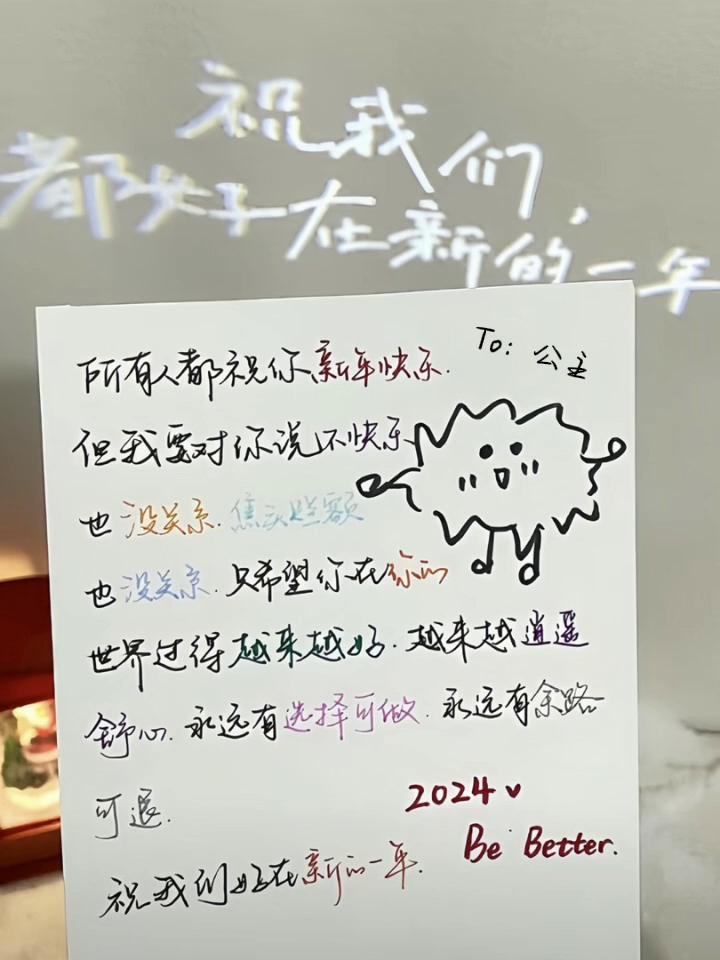 祝我们,
都好在新的一年
To: 公主
所有人都祝你新年快乐.
但我要对你说不快乐
也没关系.焦头烂额
也没关系.只希望你在你的
世界过得越来越好.越来越逍遥
舒心.永远有选择可做.永远有余路
可退.
2024
Be Better.
祝我们好在新的一年.